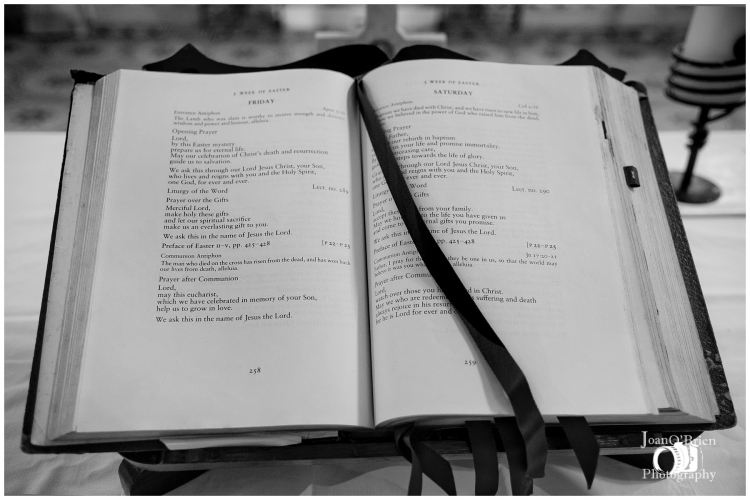 5 WEEK OF EASTER
FRIDAY
Entrance Antiphon
The Lamb who was slain is worthy to receive strength and divinity,
wisdom and power and honour, alleluia.
Opening Prayer
Lord,
by this Easter mystery
prepare us for eternal life.
May our celebration of Christ's death and resurrection
guide us to salvation.
We ask this through our Lord Jesus Christ, your Son,
who lives and reigns with you and the Holy Spirit,
one God, for ever and ever.
Liturgy of the Word Lect. no. 289
Prayer over the Gifts
Merciful Lord,
make holy these gifts
and let our spiritual sacrifice
make us an everlasting gift to you.
We ask this in the name of Jesus the Lord.
Preface of Easter II–V, pp. 425–428 [P 22–P 25
Communion Antiphon
The man who died on the cross has risen from the dead, and has won back
our lives from death, alleluia.
Prayer after Communion
Lord,
may this eucharist,
which we have celebrated in memory of your Son,
help us to grow in love.
We ask this in the name of Jesus the Lord.
258
5 WEEK OF EASTER
SATURDAY
Entrance Antiphon Col 2:12
we have died with Christ, and we have risen to new life in him,
we believed in the power of God who raised him from the dead,
Prayer
Father,
our rebirth in baptism
us your life and promise immortality.
increasing care,
steps towards the life of glory.
through our Lord Jesus Christ, your Son,
and reigns with you and the Holy Spirit,
ever and ever.
Word Lect. no. 290
Gifts
Lord,
accept these from your family.
May we hold to the life you have given us
and come to eternal gifts you promise.
We ask this
Preface of Easter pp. 425–428 [P 22–P 25
Communion Antiphon Jn 17:20-21
Father, I pray for they be one in us, so that the world may
believe it was you alleluia.
Prayer after Communion
Lord,
watch over those you in Christ.
May we who are redeemed his suffering and death
always rejoice in his resurrection,
for he is Lord for ever and ever.
259
JoanO'Brien
Photography